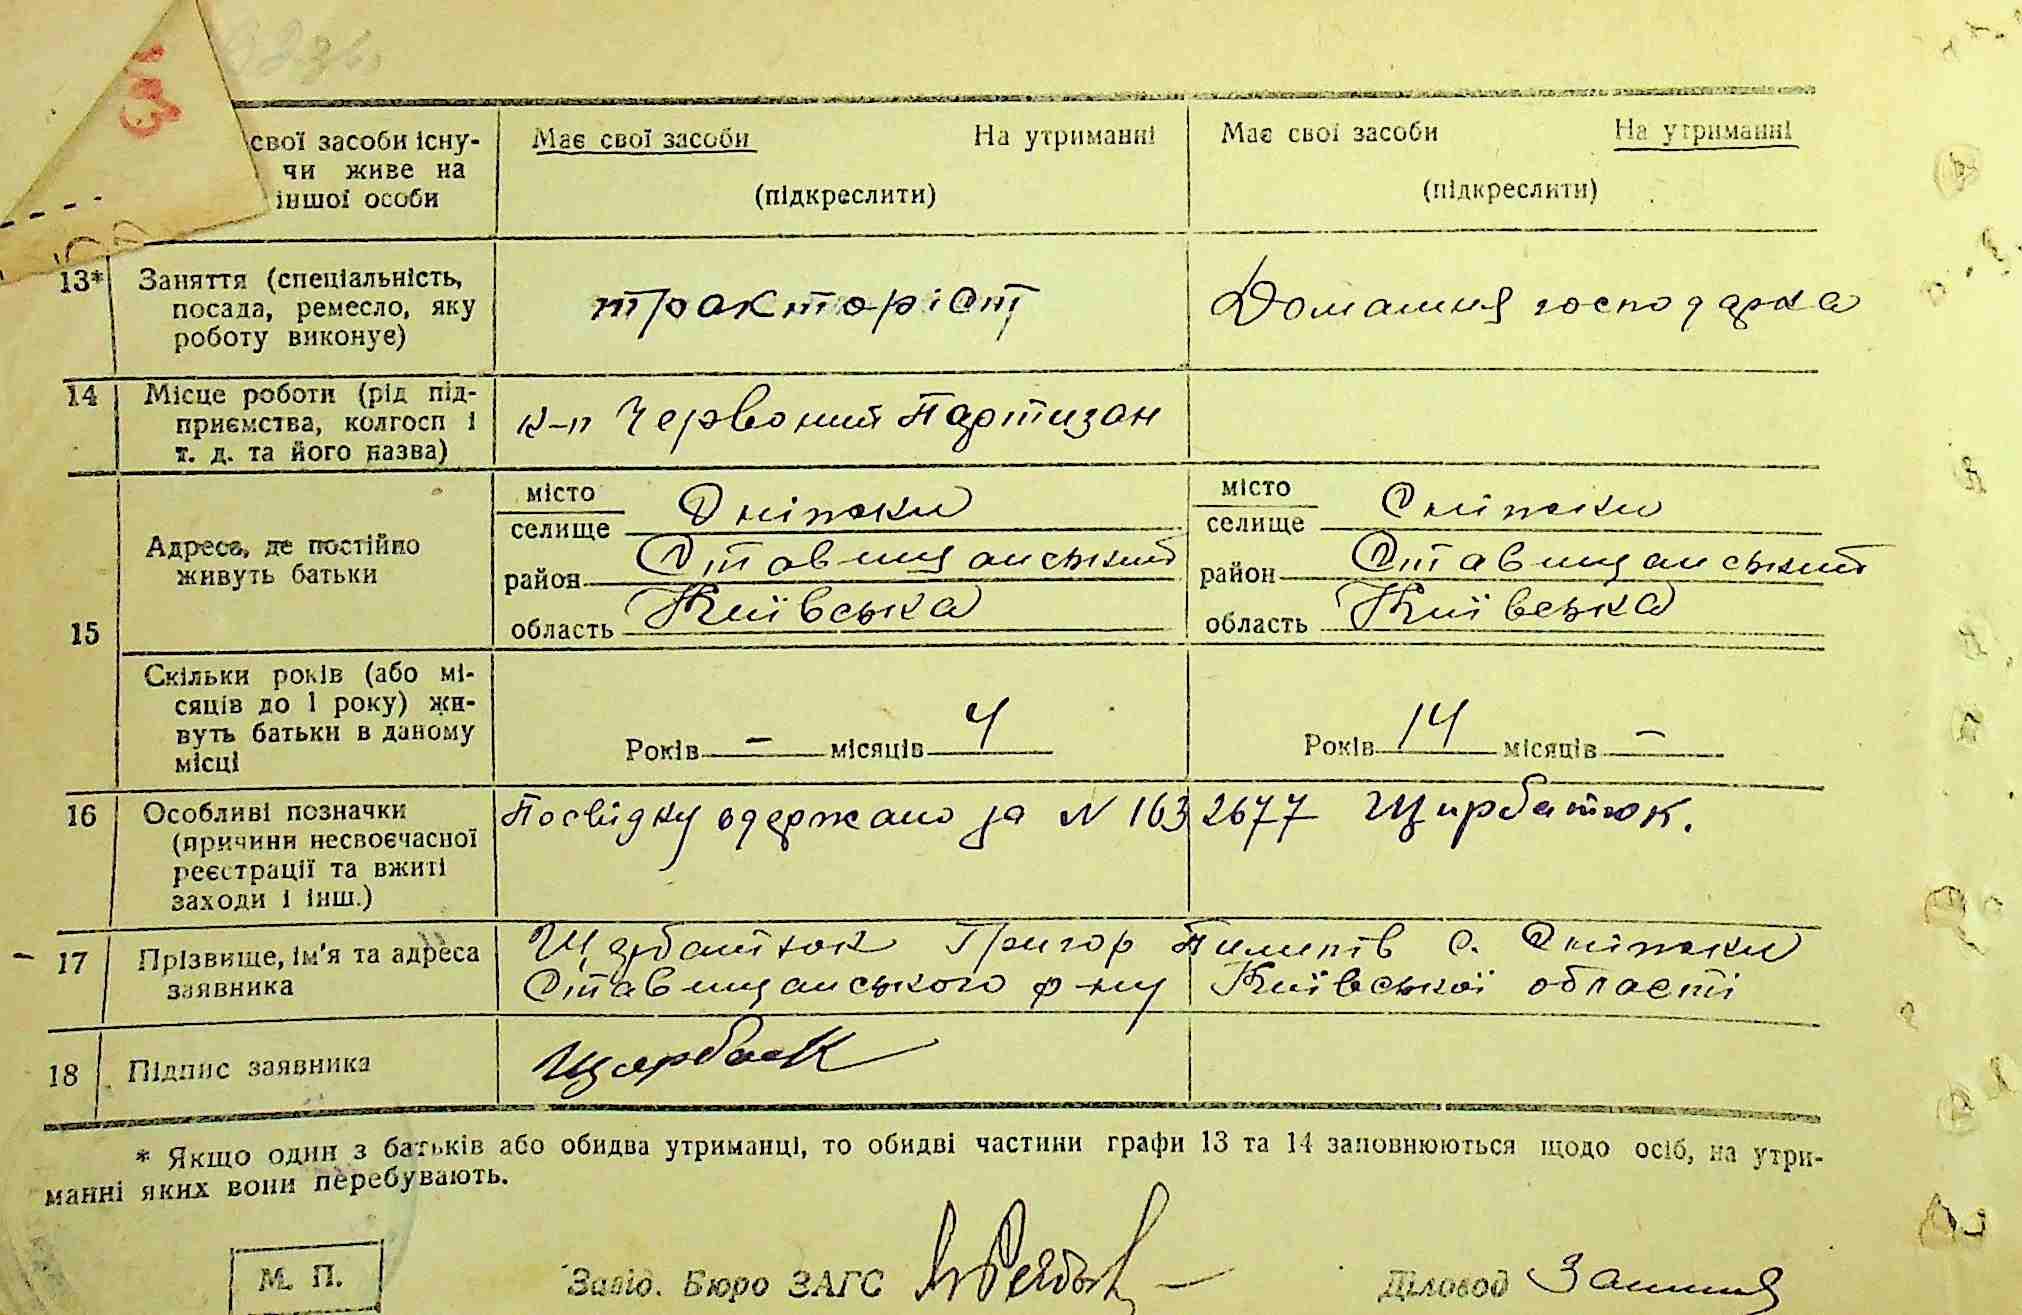 свої засоби існу-
чи живе на
іншої особи
Має свої засоби На утриманні
(підкреслити)
Має свої засоби На утриманні
(підкреслити)
13* Заняття (спеціальність,
посада, ремесло, яку
роботу виконує)
тракторіст
Домашня господарка
14 Місце роботи (рід під-
приємства, колгосп і
т. д. та його назва)
к-п Червоний Партизан
15 Адреса, де постійно
живуть батьки
місто
селище Сніжки
район Ставищанський
область Київська
місто
селище Сніжки
район Ставищанський
область Київська
Скільки років (або мі-
сяців до 1 року) жи-
вуть батьки в даному
місці
Років – місяців 4
Років 14 місяців –
16 Особливі позначки
(причини несвоєчасної
реєстрації та вжиті
заходи і інш.)
Посвідку одержано за N 1632677 Щирбатюк.
17 Прізвище, ім'я та адреса
заявника
Щарбатюк Григор Пилипів с. Сніжки
Ставищанського р-ну Київської області
18 Підпис заявника
* Якщо один з батьків або обидва утриманці, то обидві частини графи 13 та 14 заповнюються щодо осіб, на утри-
манні яких вони перебувають.
М. П.
Завід. Бюро ЗАГС
Діловод